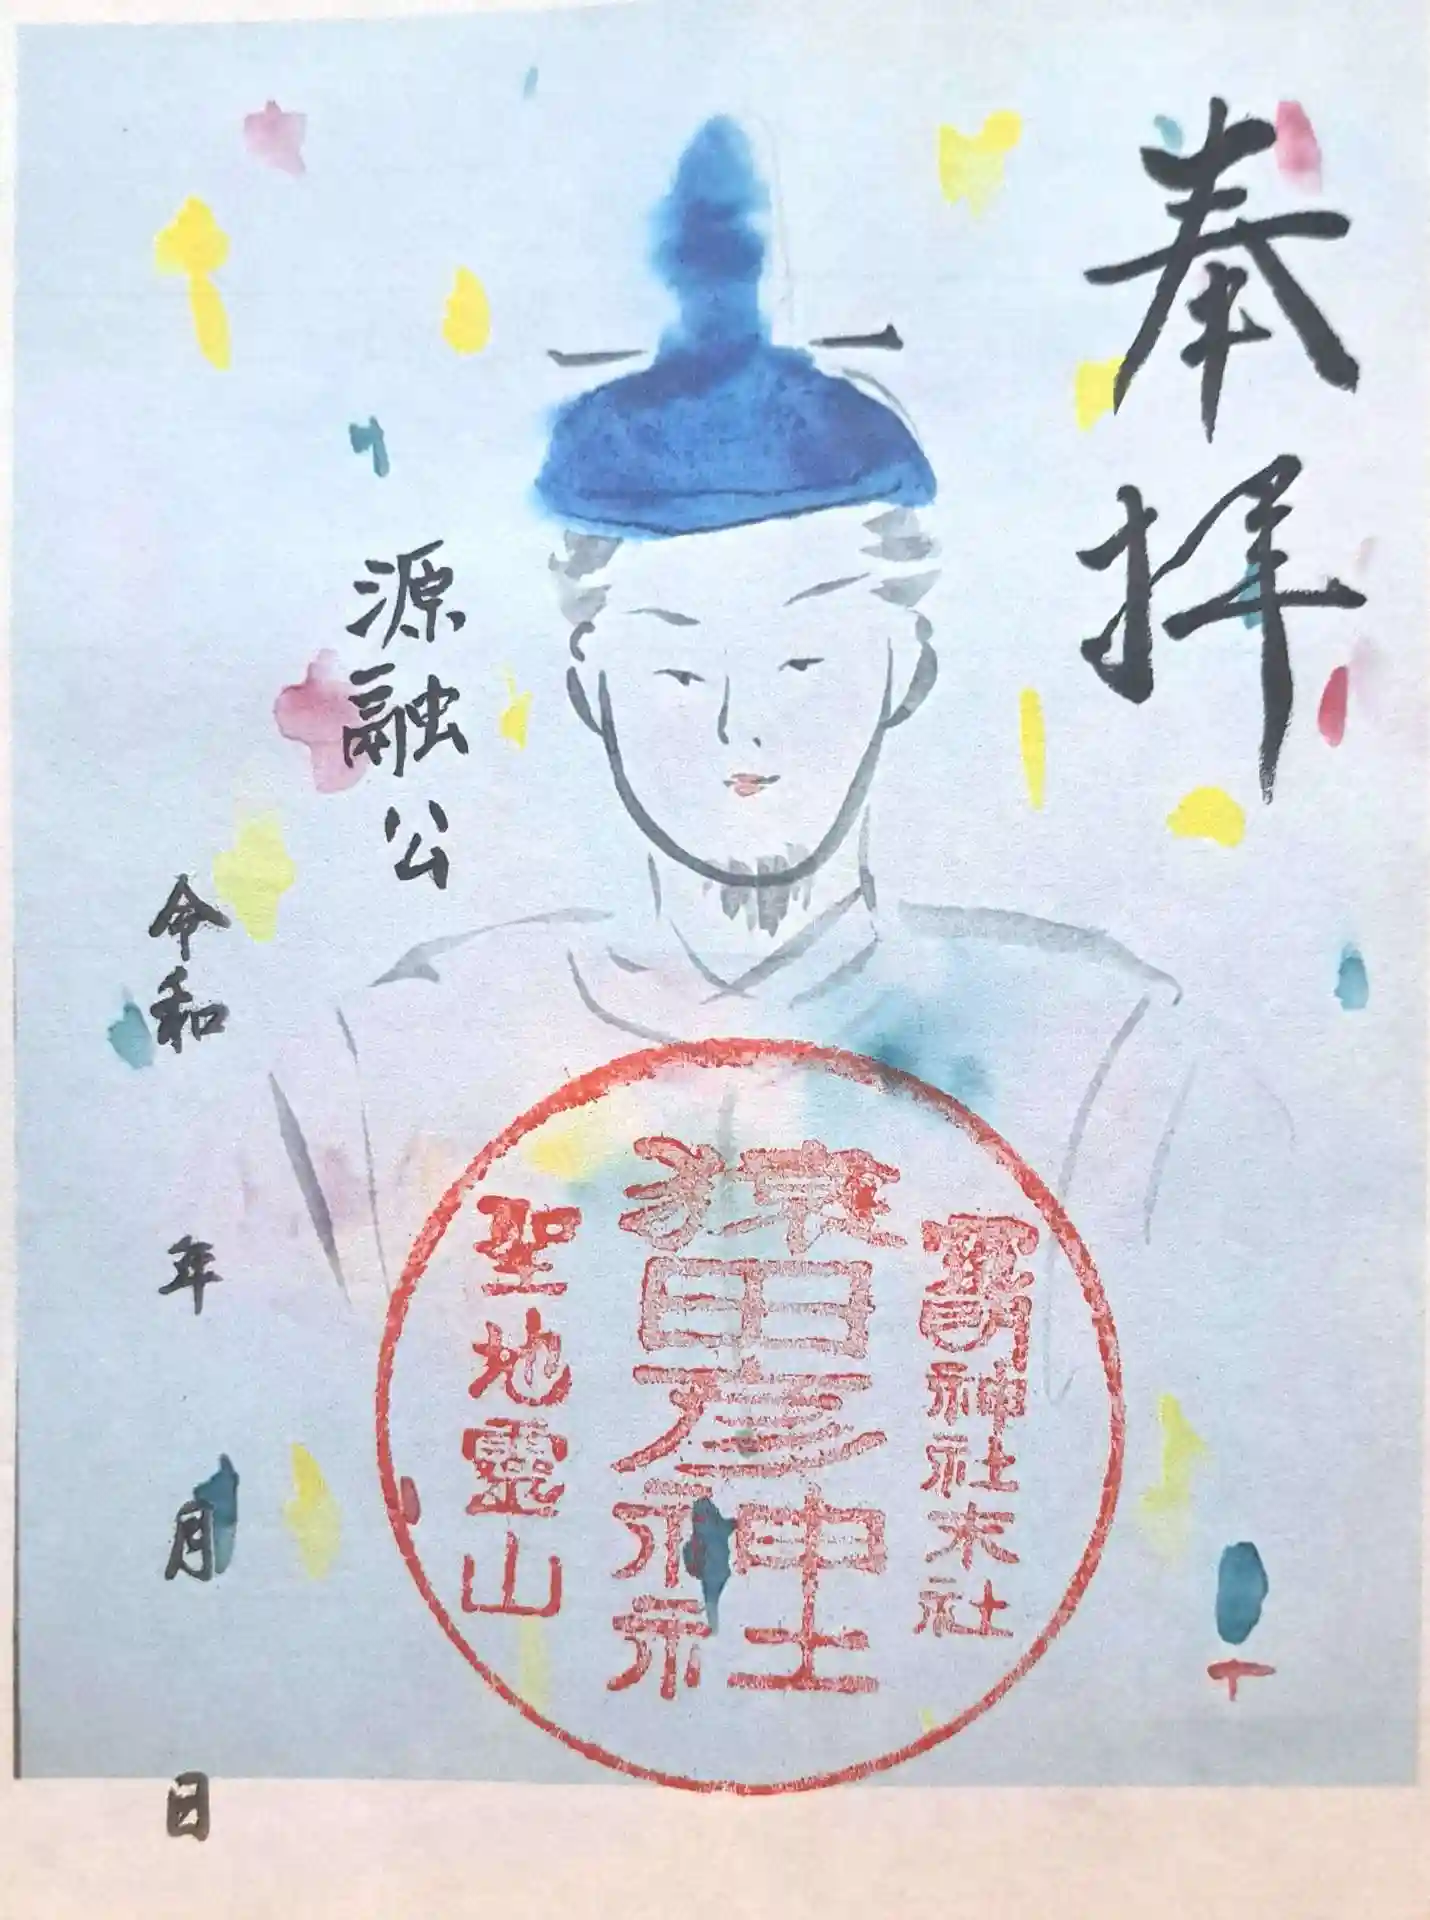 奉拝
源融公
令和 年 月 日
神社末社
猿田彦神社
聖地靈山